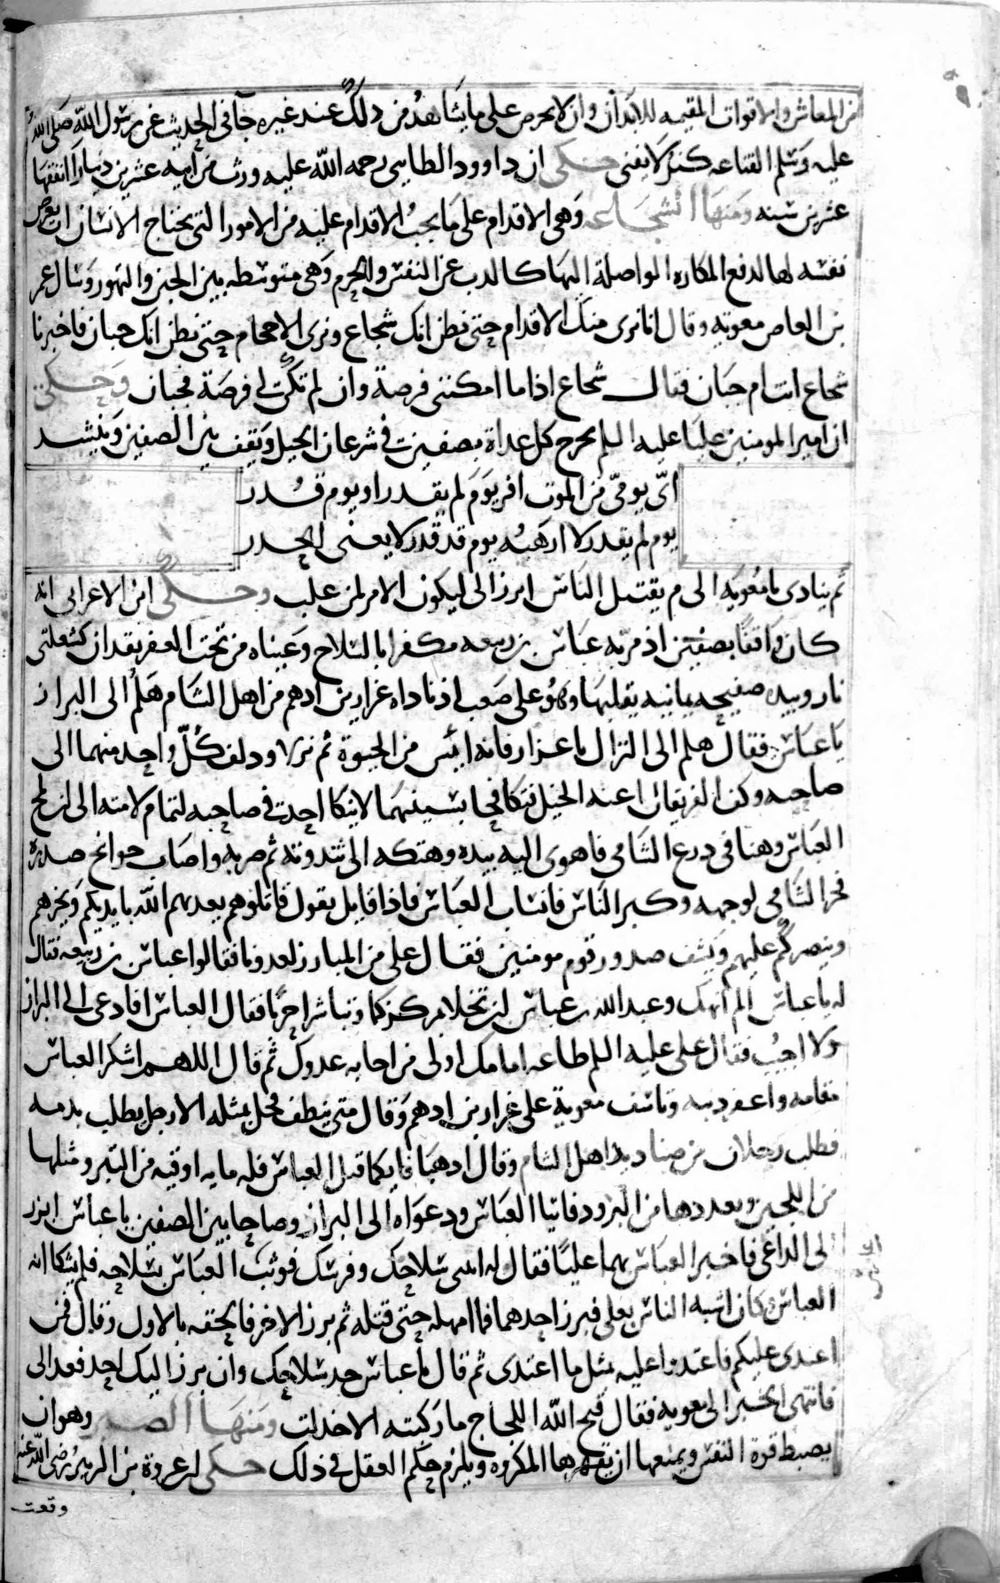 من المعاش والاقوات المقيمه للابدان وان لا يحرص على ما يشاهد من ذلك عند غيره جآ في الحديث عن رسول الله صلى الله
عليه وسلم القناعه كنز لا يفنى حكى ان داوود الطايى رحمه الله عليه ورث من ابيه عشرين دينارا انفقها
عشرين سنه ومنها الشجاعه وهى الاقدام على ما يجب الاقدام عليه من الامور التى يحتاج الانسان ان يعرض
نفسه لها لدفع المكاره الواصلة اليها كالذب عن النفس والحرم وهى متوسطه بين الجبن والتهور وسال عمر
بن العاص معويه وقال انا نرى منك الاقدام حتى نظن انك شجاع ونرى الاحجام حتى نظن انك جبان فاخبرنا
شجاع انت ام جبان فقال شجاع اذا ما امكنتنى فرصة وان لم تكن لى فرصة فجبان وحكى
ان امير المومنين عليا عليه السلم يخرج كل غداة بصفين فى سرعان الخيل ويقف بين الصفين وينشد
اى يومى من الموت افر يوم لم يقدر او يوم قدر
يوم لم يقدر لا ارهبه يوم قد قدر لا يغنى الحذر
ثم ينادى يا معويه الى م يقتتل الناس ابرز الى ليكون الامر لمن غلب وحكى ابن الاعرابى انه
كان واقفا بصفين اذ مر به عباس بن ربيعه مكفرا بالسلاح وعيناه من تحت المغفر يقدان كشعلتى
نار وبيده صفيحه يمانيه يقلبها وهو على صعب اذ ناداه عرار بن ادهم من اهل الشام هلم الى البراز
يا عباس فقال هلم الى النزال يا عرار فانه ايئس من الحيوة ثم نزلا ودلف كل واحد منهما الى
صاحبه وكف الفريقان اعنه الخيل فتكافحا بسيفيهما لا ينكا احد فى صاحبه لتمام لامته الى ان لمح
العباس وهنا فى درع الشامى فاهوى اليه بيده وهتكه الى ثندوته ثم ضربه واصاب جوانح صدره
فخر الشامى لوجهه وكبر الناس فانساب العباس فاذا قايل يقول قاتلوهم يعذبهم الله بايديكم ويخزهم
وينصركم عليهم ويشف صدور قوم مومنين فقال على من المبارز لعدونا فقالوا عباس بن ربيعه فقال
له يا عباس الم انهك وعبد الله بن عباس ان تخلا بمركزكما وتباشرا حربا فقال العباس افادعى الى البراز
ولا اجيب فقال على عليه السلم طاعه امامك اولى من اجابه عدوك ثم قال اللهم اشكر العباس
مقامه واغفر ذنبه وتاسف معوية على عرار بن ادهم وقال متى ينطف فحل بمثله الا رجل يطلب بدمه
فطلب رجلان من صناديد اهل الشام وقال اذهبا فايكما قتل العباس فله مايه اوقيه من التبر ومثلها
من اللجين وبعددها من البرود فاتيا العباس ودعواه الى البراز وصاحا بين الصفين يا عباس ابرز
الى الداعى فاخبر العباس بهما عليا فقال له اعنى سلاحك وفرسك فوثب العباس بسلاحه فلم يشكا انه
العباس وكان اشبه الناس بعلى فبرز احدهما فما امهله حتى قتله ثم برز الاخر فالحقه بالاول وقال فمن
اعتدى عليكم فاعتدوا عليه بمثل ما اعتدى ثم قال يا عباس خذ سلاحك وان برز اليك احد فعد الى
فانتهى الخبر الى معويه فقال قبح الله اللجاج ما ركبته الا خذلت ومنها الصبر وهو ان
يضبط قوة النفس ويمنعها ان يقهرها المكروه ويلزم حكم العقل فى ذلك حكى ان عروة بن الزبير رضى الله عنه
وقعت